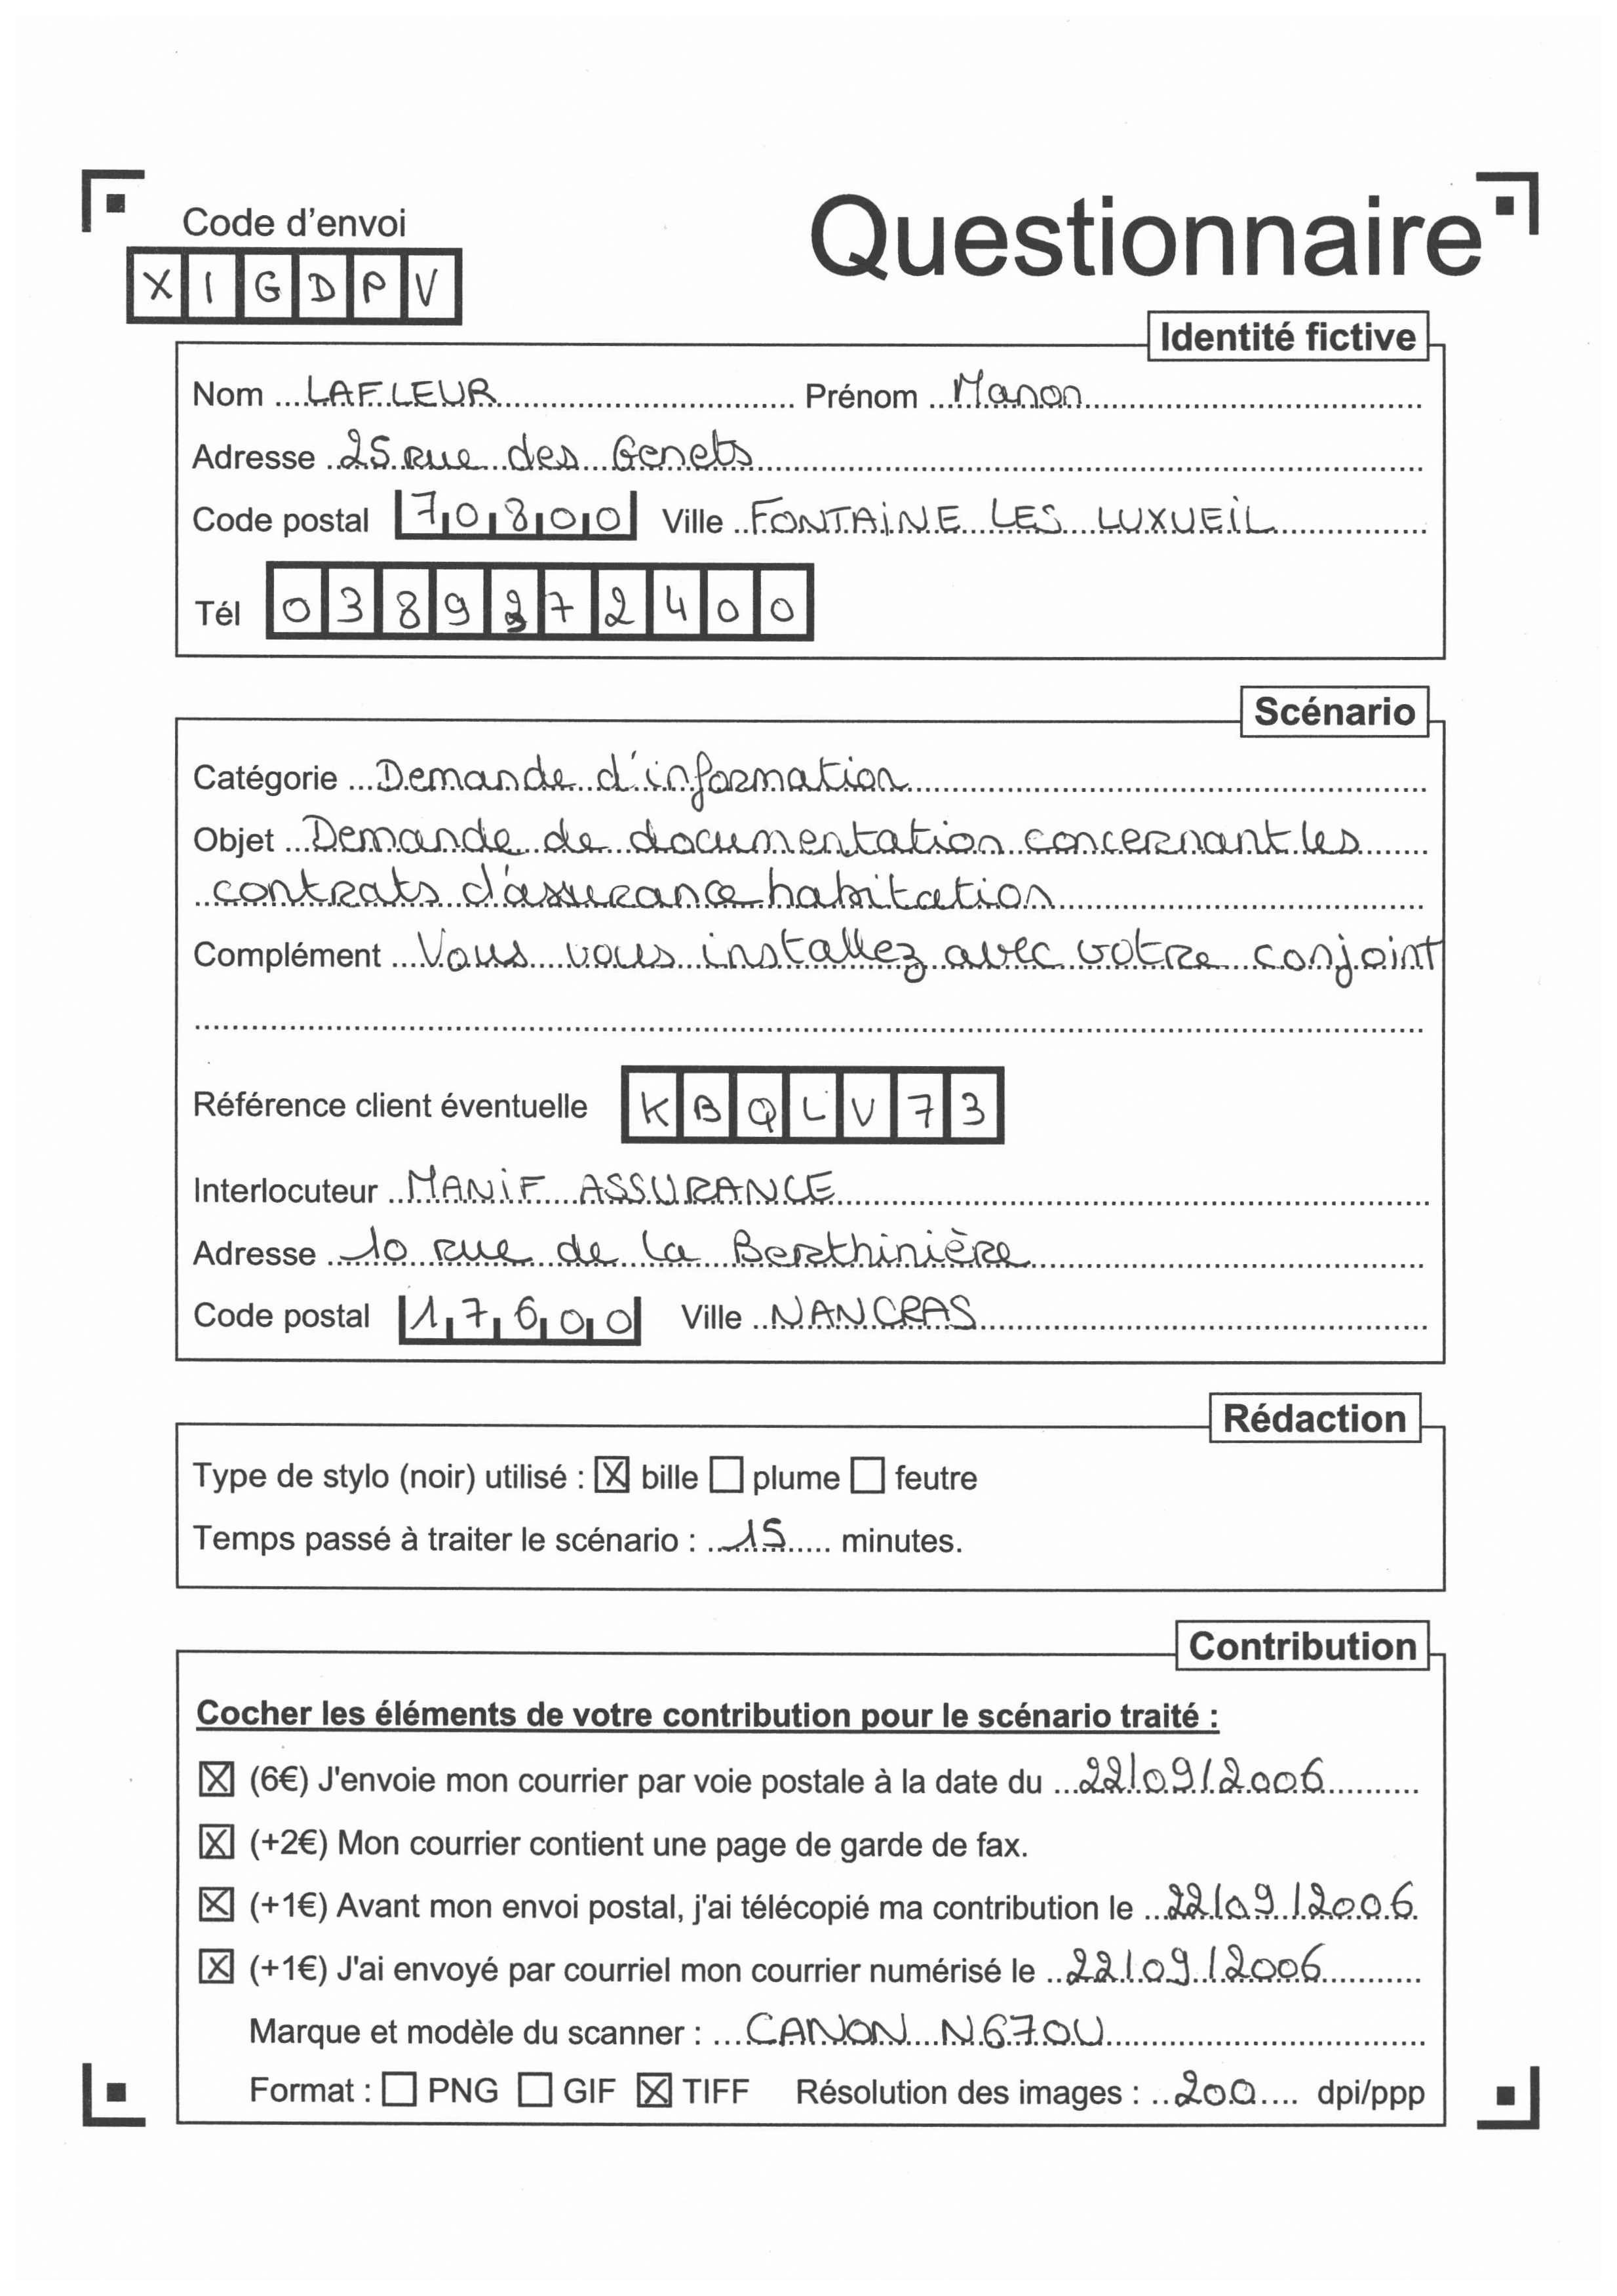 Code d'envoi
XIGDPV
Questionnaire
Identité fictive
Nom LAFLEUR Prénom Manon
Adresse 25 rue des Genets
Code postal 70800 Ville FONTAINE LES LUXUEIL
Tél 0389272400
Scénario
Catégorie Demande d'information
Objet Demande de documentation concernant les
contrats d'assurance habitation
Complément Vous vous installez avec votre conjoint
Référence client éventuelle KBQLV73
Interlocuteur MANIF ASSURANCE
Adresse 10 rue de la Berthinière
Code postal 17600 Ville NANCRAS
Rédaction
Type de stylo (noir) utilisé : ☒ bille ☐ plume ☐ feutre
Temps passé à traiter le scénario : 15 minutes.
Contribution
Cocher les éléments de votre contribution pour le scénario traité :
☒ (6€) J'envoie mon courrier par voie postale à la date du 22/09/2006
☒ (+2€) Mon courrier contient une page de garde de fax.
☒ (+1€) Avant mon envoi postal, j'ai télécopié ma contribution le 22/09/2006
☒ (+1€) J'ai envoyé par courriel mon courrier numérisé le 22/09/2006
Marque et modèle du scanner : CANON N670U
Format : ☐ PNG ☐ GIF ☒ TIFF Résolution des images : 200 dpi/ppp